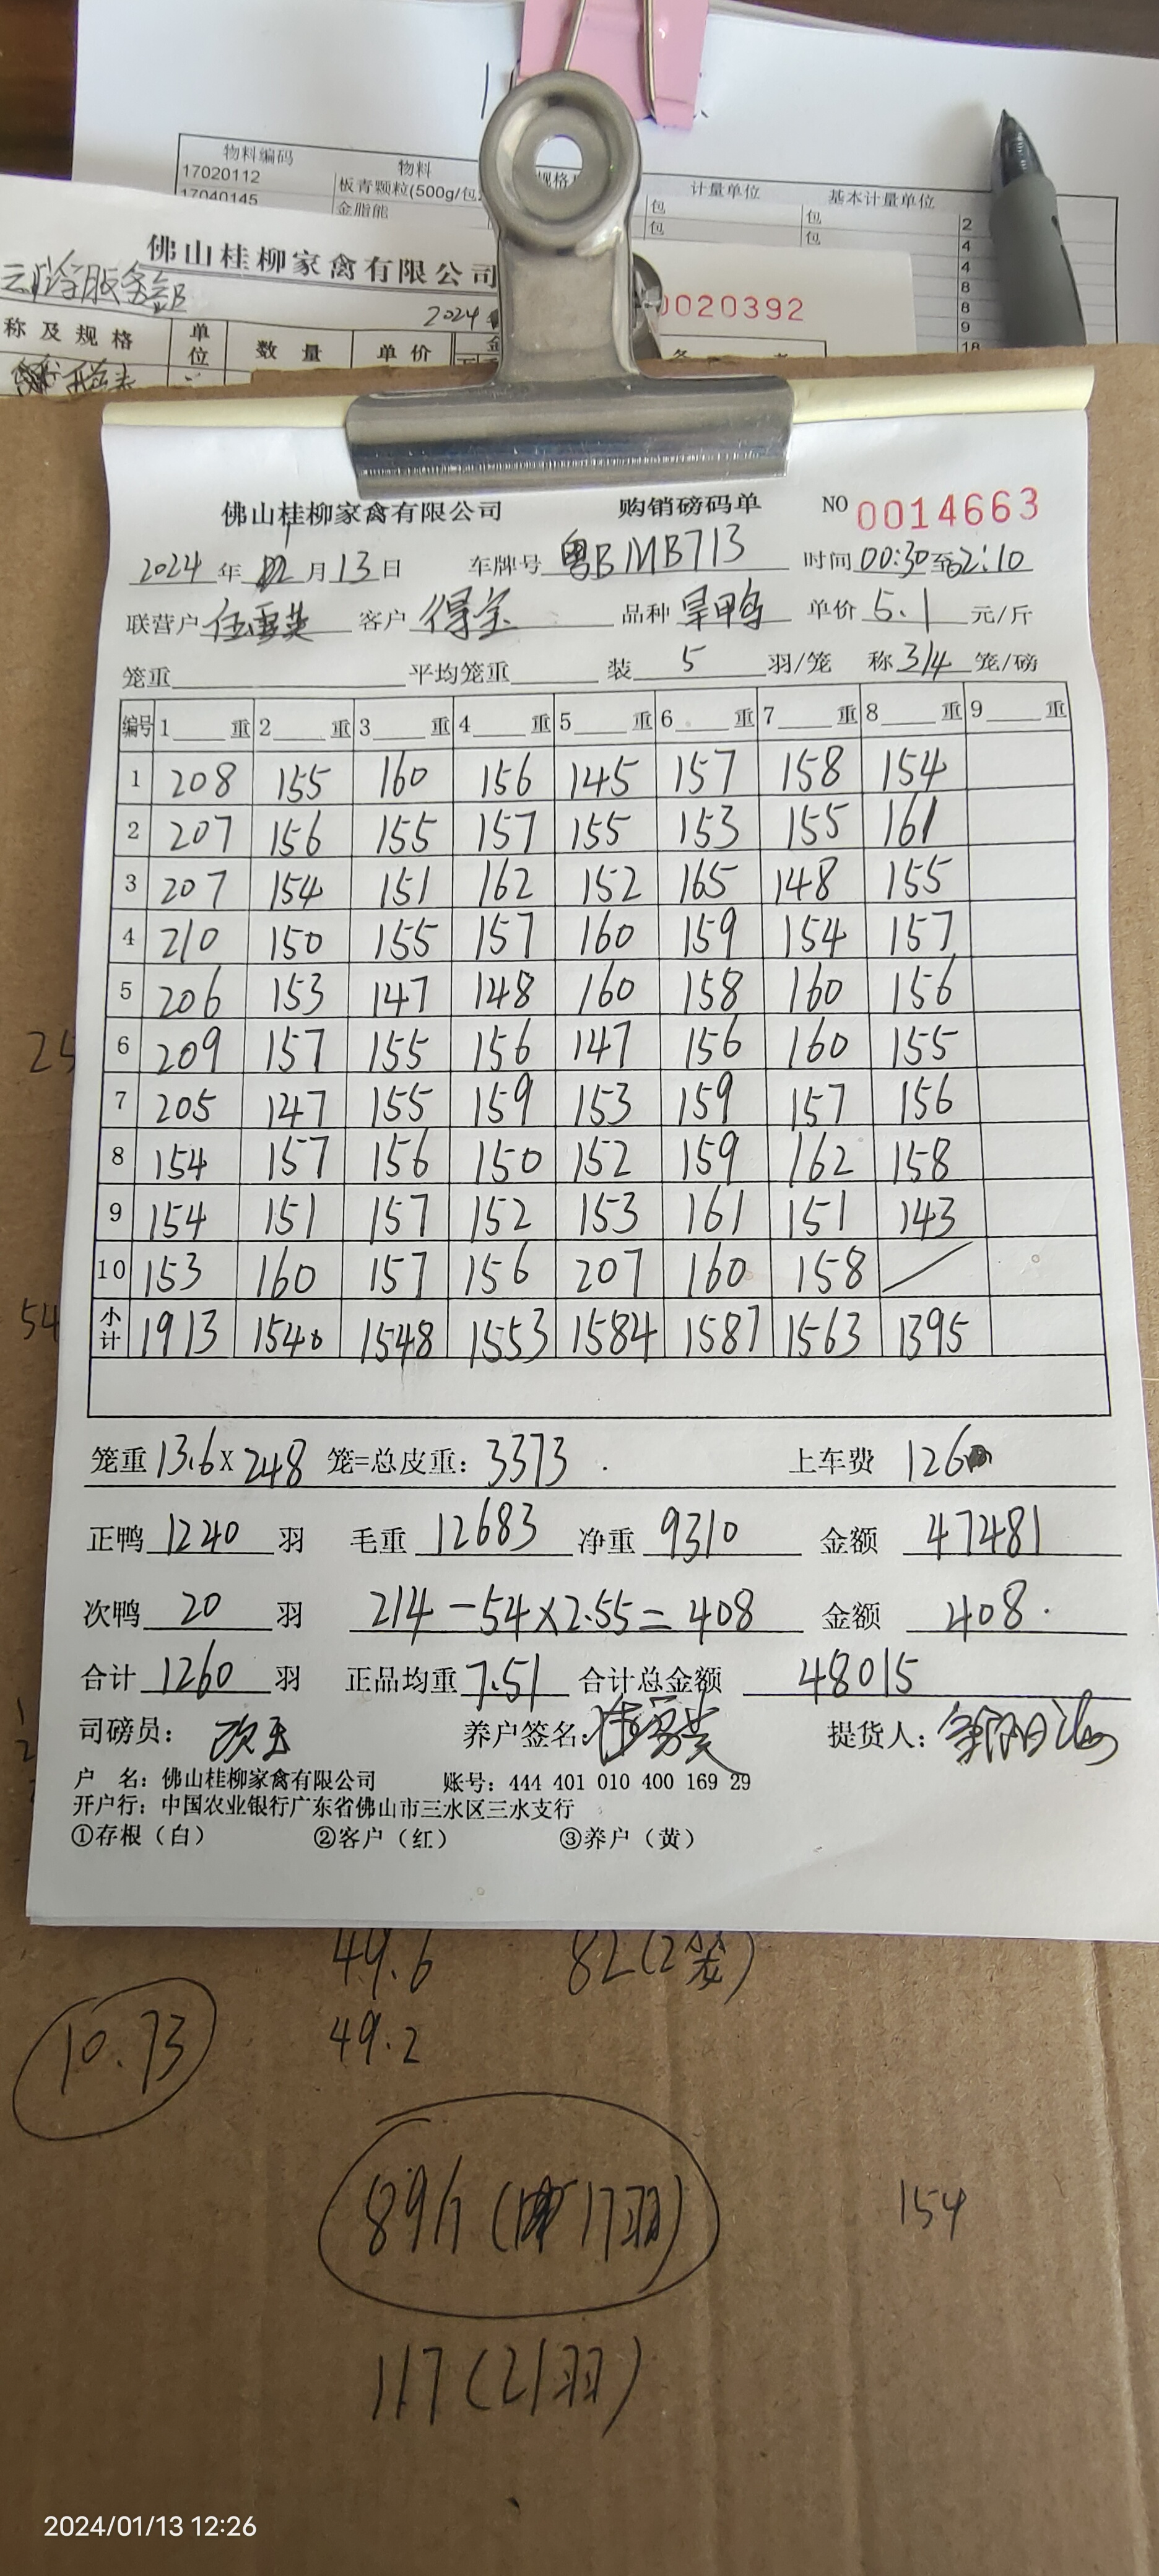 物料编码 物料 规格 计量单位 基本计量单位
17020112 板青颗粒(500g/包 包 包 2
17040145 金脂能 包 包 4
4
8
8
9
18
佛山桂柳家禽有限公司
0020392
2024
称及规格 单位 数量 单价 金
佛山桂柳家禽有限公司 购销磅码单 NO 0014663
2024年 月13日 车牌号 粤BMB713 时间 00:30至2:10
联营户 伍雪英 客户 得宝 品种 旱鸭 单价 5.1 元/斤
笼重 平均笼重 装 5 羽/笼 称 3/4 笼/磅
编号 1 重 2 重 3 重 4 重 5 重 6 重 7 重 8 重 9 重
1 208 155 160 156 145 157 158 154
2 207 156 155 157 155 153 155 161
3 207 154 151 162 152 165 148 155
4 210 150 155 157 160 159 154 157
5 206 153 147 148 160 158 160 156
6 209 157 155 156 147 156 160 155
7 205 147 155 159 153 159 157 156
8 154 157 156 150 152 159 162 158
9 154 151 157 152 153 161 151 143
10 153 160 157 156 207 160 158 /
小计 1913 1540 1548 1553 1584 1587 1563 1395
笼重 13.6 X 248 笼=总皮重: 3373 上车费 126
正鸭 1240 羽 毛重 12683 净重 9310 金额 47481
次鸭 20 羽 214-54×2.55=408 金额 408.
合计 1260 羽 正品均重 7.51 合计总金额 48015
司磅员: 养户签名: 提货人:
户 名: 佛山桂柳家禽有限公司 账号: 444 401 010 400 169 29
开户行: 中国农业银行广东省佛山市三水区三水支行
①存根(白) ②客户(红) ③养户(黄)
25
54
49.6 82(2笼)
10.73 49.2
(17羽)
154
117(21羽)
2024/01/13 12:26